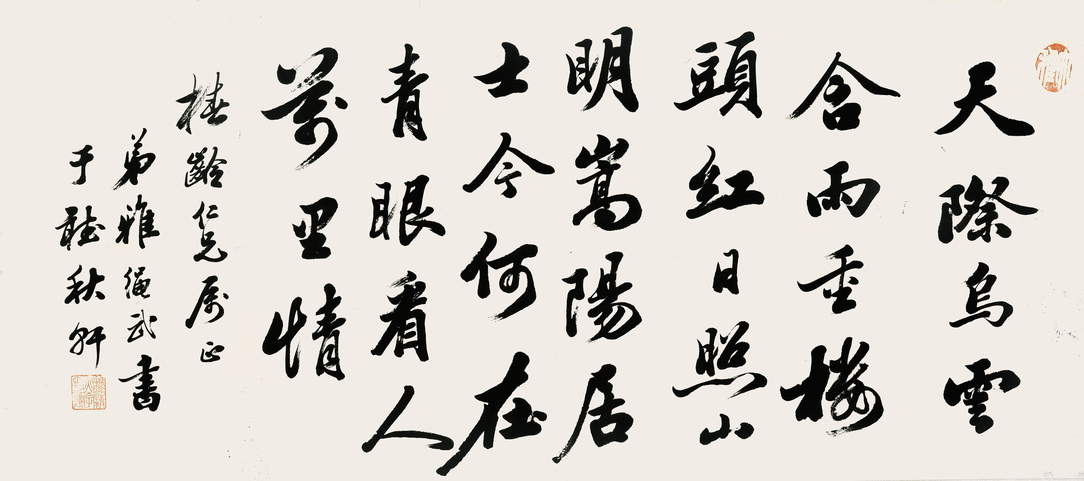 天際烏雲
含雨重樓
頭紅日照山
明嵩陽居
士今何在
青眼看人
萬里情
椿齡仁兄属正
弟雅繩武書
于聽秋軒